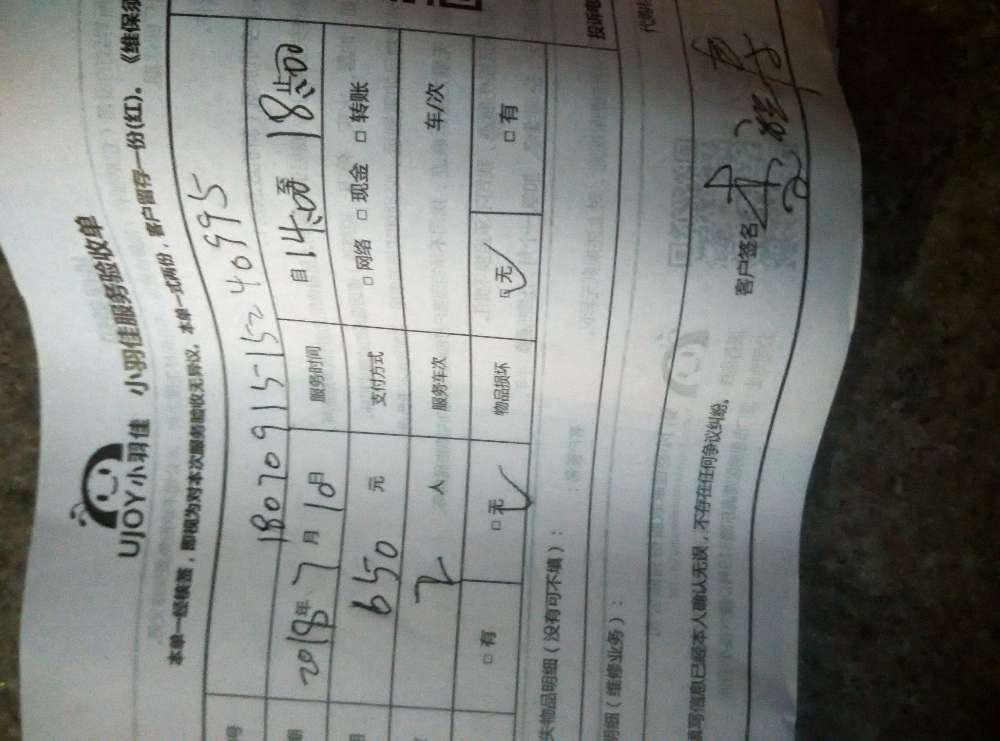 UJOY小羽佳 小羽佳服务验收单
本单一经核签，即视为对本次服务验收无异议。本单一式两份，客户留存一份(红)。《维保须
号 180709151524 0995
期 2018年 7月 10日 服务时间 自 14:00 至 18:00 止
用 650 元 支付方式 □网络 □现金 □转账
2 人 服务车次 车/次
□有 □无 ✓ 物品损坏 □无 ✓ □有
失物品明细（没有可不填）：
明细（维修业务）： 投诉电
填写信息已经本人确认无误，不存在任何争议纠纷。 客户签名